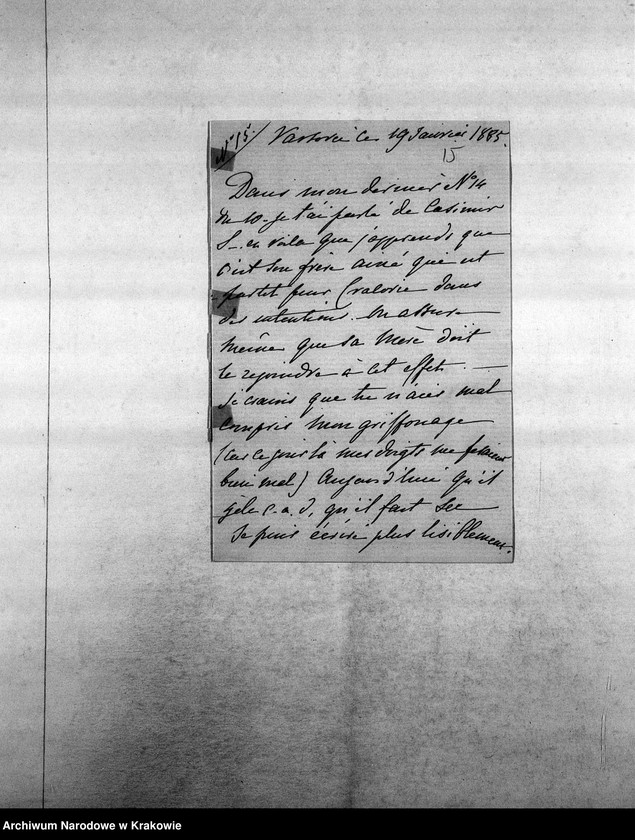 No 15/ Varsovie ce 19 Janvier 1885.
15
Dans mon dernier No 14
du 10 je t'ai parlé de Casimir
S_ en voila que j'apprends que
c'est son frère ainé qui est
partit pour Cracovie dans
des intentions. On assure
même que sa Mère doit
le rejoindre à cet effet. —
Je crains que tu n'aies mal
compris mon griffonage
(car ce jour là mes doigts me faisaient
bien mal) Aujourd'hui qu'il
gèle c. a. d. qu'il fait sec
Je puis écrire plus lisiblement.
Archiwum Narodowe w Krakowie